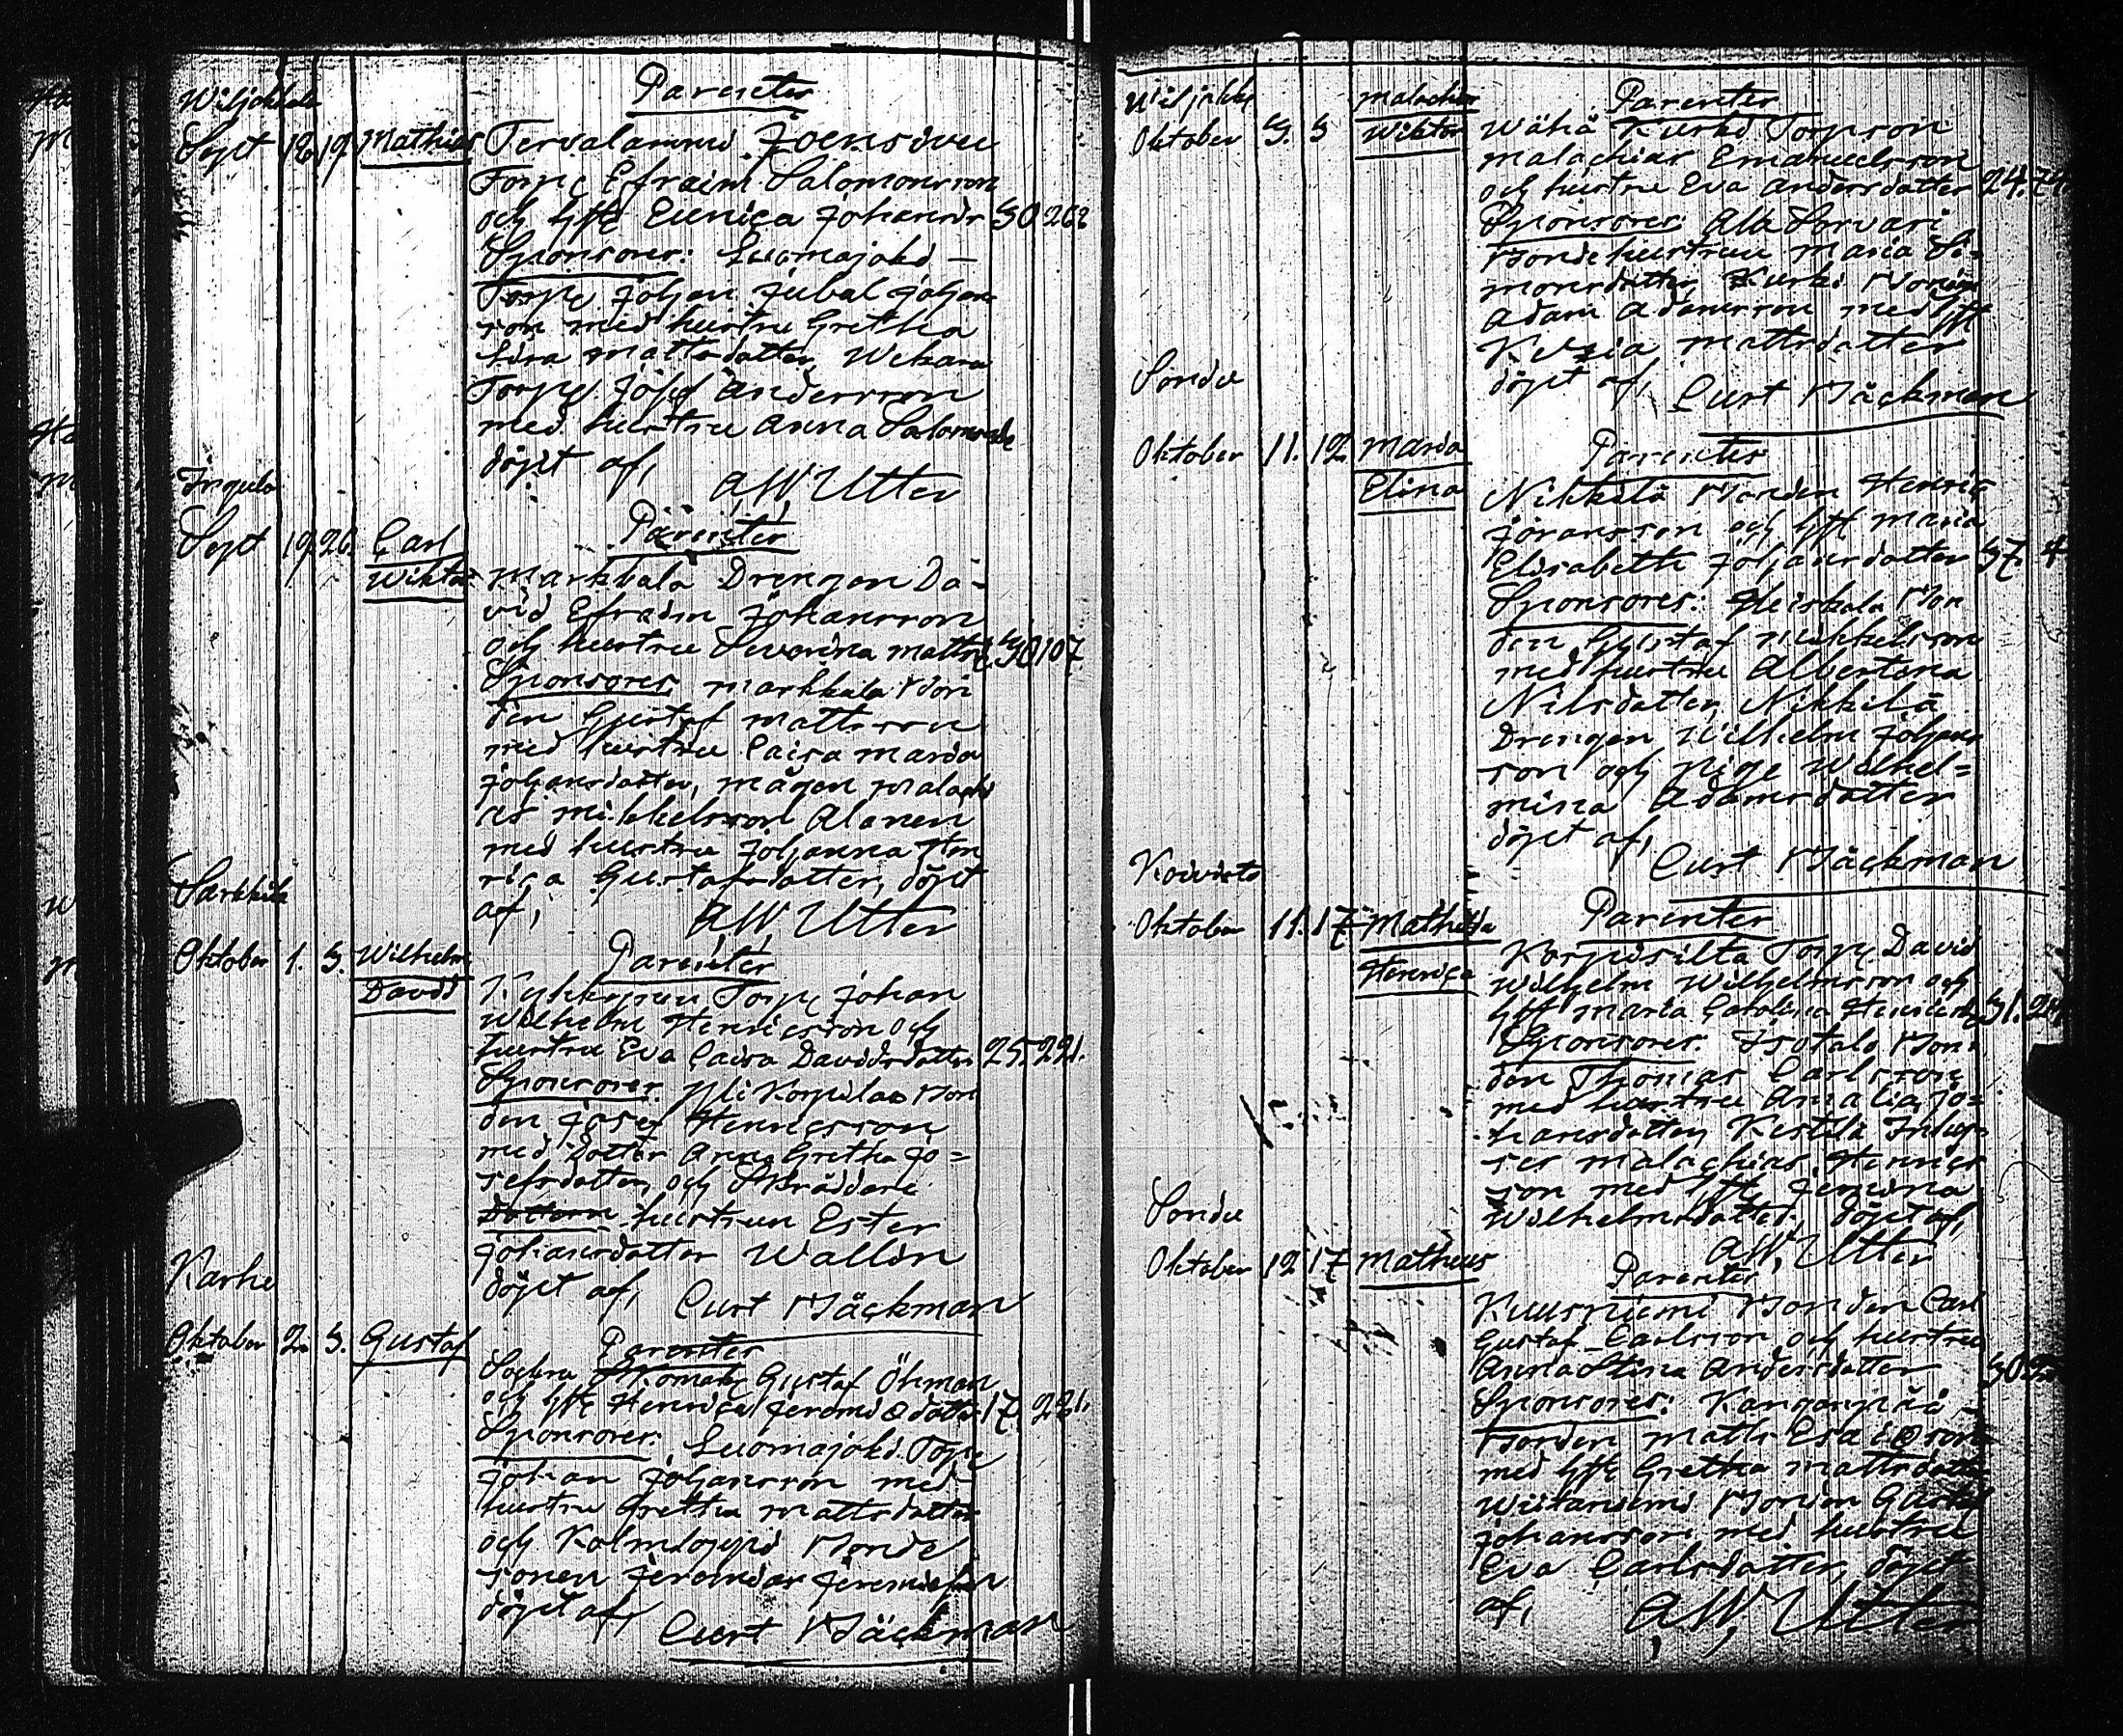 Parenter
Wiljakkala
Sept 18. 19. Mathias Tervalammi Joensivu
Torp. Efraim Salomonsson
och hfr Eunica Johansdr 30 262
Sponsorer: Luomajoki
Torp. Johan Jubal Johans
son med hustru Gretha
Lisa Mattsdotter, Wekara
Torp. Josef Andersson
med hustru Anna Salomonsdr
döpt af,
A W Utter
Ingula
Parenter
Sept 19. 26. Carl
Wiktor Markkala Drengen Da-
vid Efraim Johansson
och hustru Severina Mattsd. 30 107
Sponsorer Markkala Bon
den Gustaf Mattsson
med hustru Caisa Maria
Johansdotter, mågen Malachi
as Mikkelsson Alanen
med hustru Johanna Hen
rica Gustafsdotter, döpt
af,
A W Utter
Sarkkila
Parenter
Oktober 1. 3. Wilhelm
David
Torp. Johan
Wilhelm Henricsson och
hustru Eva Caisa Davidsdotter 25. 221.
Sponsorer. Yli Korpilas Bon
den Josef Henricsson
med Dotter Anna Gretha Jo=
sefsdotter, och Skräddare
Dottern hustrun Ester
Johansdotter Wallin
döpt af,
Curt Bäckman
Karhe
Parenter
Oktober 2. 3. Gustaf
Sockne Skomak. Gustaf Öhman
och hfr Henrica Jeremiædotter 17. 231.
Sponsorer. Luomajoki Torp.
Johan Johansson med
hustru Gretha Mattsdotter
och Kolmiloppi Bonde
sonen Jeremias Jeremiæson
döpt af,
Curt Bäckman
Wiljakk. Malachias
Parenter
Oktober 3. 5 Wiktor Wähä Kurki Torp.son
Malachias Emanuelsson
och hustru Eva Andersdotter 24.
Sponsorer Ala Sorvari
Bondehustrun Maria Si-
monsdotter, Kurki Bonden
Adam Adamsson med hfr
Kezia Mattsdotter
döpt af,
Curt Bäckman
Sondu
Oktober 11. 12. Maria
Elina
Parenter
Nikkilä Bonden Henric
Göransson och hfr Maria
Elisabeth Johansdotter 37. 4
Sponsorer: Heiskala Bon
den Gustaf Mikkelsson
med hustru Albertina
Nilsdotter, Nikkilä
Drengen Wilhelm Johans
son och Pige Wilhel=
mina Adamsdotter
döpt af,
Curt Bäckman
Koivisto
Parenter
Oktober 11. 17 Mathilda
Henrica
Korpisilta Torp. David
Wilhelm Wilhelmsson och
hfr Maria Carolina Henricsdr 31.
Sponsorer. Isotalo Bon-
den Thomas Carlsson
med hustru Amalia Jo=
hansdotter, Kestilä Inhys-
ses Malachias Henrics
son med hfr Jemina
Wilhelmsdotter, döpt af,
A W Utter
Sondu
Parenter
Oktober 12 17 Matheus
Kuusniemi Bonden Carl
Gustaf Carlsson och hustru
Anna Stina Andersdotter 30
Sponsorer: Kanganpää
Bonden Matts Esaiæson
med hfr Gretha Mattsdotter
Wiitaniemi Bonden Gustaf
Johansson med hustru
Eva Carlsdotter, döpt
af,
A W Utter